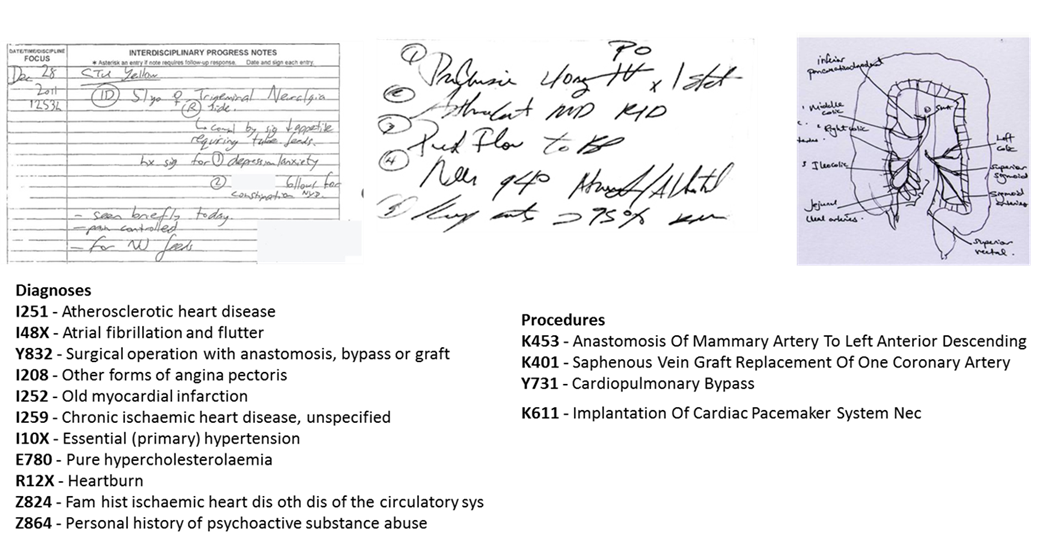 DATE/TIME/DISCIPLINE
FOCUS
INTERDISCIPLINARY PROGRESS NOTES
* Asterisk an entry if note requires follow-up response. Date and sign each entry.
Dec 28
2011
1253h
CTU Yellow
ID 51yo ♀ Trigeminal Neuralgia
(R) side
↳ by sig ↓ appetite
requiring tube feeds.
hx sig for ① depression/anxiety
② follows for
constipation
- seen briefly today.
- pain controlled
- for feeds
①
PO
40mg IV x 1 stat
②
③
to
④
Neb q4°
⑤
>95%
inferior
pancreaticoduodenal
middle
colic
SMA
Right colic
Ileocolic
Jejunal
ileal arteries
Left
colic
superior
sigmoid
sigmoid
arteries
superior
rectal
Diagnoses
I251 - Atherosclerotic heart disease
I48X - Atrial fibrillation and flutter
Y832 - Surgical operation with anastomosis, bypass or graft
I208 - Other forms of angina pectoris
I252 - Old myocardial infarction
I259 - Chronic ischaemic heart disease, unspecified
I10X - Essential (primary) hypertension
E780 - Pure hypercholesterolaemia
R12X - Heartburn
Z824 - Fam hist ischaemic heart dis oth dis of the circulatory sys
Z864 - Personal history of psychoactive substance abuse
Procedures
K453 - Anastomosis Of Mammary Artery To Left Anterior Descending
K401 - Saphenous Vein Graft Replacement Of One Coronary Artery
Y731 - Cardiopulmonary Bypass
K611 - Implantation Of Cardiac Pacemaker System Nec